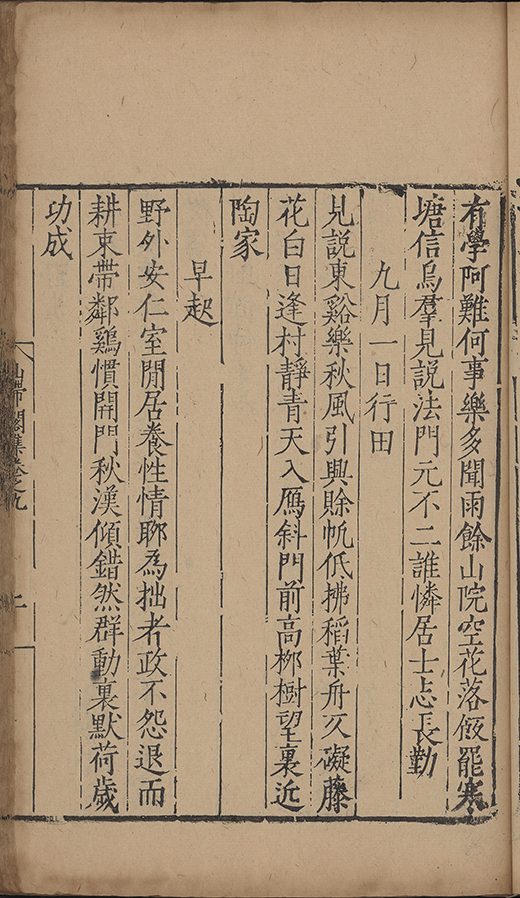 有學阿難何事樂多聞雨餘山院空花落飯罷寒
塘信烏羣見說法門元不二誰憐居士忘長勤
九月一日行田
見說東谿樂秋風引興賒帆低拂稻葉舟仄礙藤
花白日逢村靜青天入鴈斜門前高栁樹望裏近
陶家
早起
野外安仁室閒居養性情聊為拙者政不怨退而
耕束帶鄰鷄慣開門秋漢傾錯然群動裏默荷歲
功成
山帶閣集卷之九